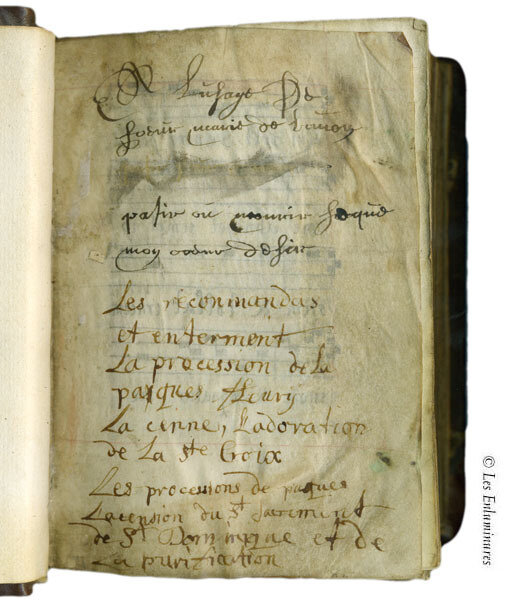 A Lusage De
soeur marie de
patir ou mourir se que
moy coeur desir
Les recommandas
et enterment
La procession de la
pasques fleury
La cenne, Ladoration
de La ste Croix
Les processions de pasques
Lacension du st sacrement
de st Dominique et de
La purification
© Les Enluminures